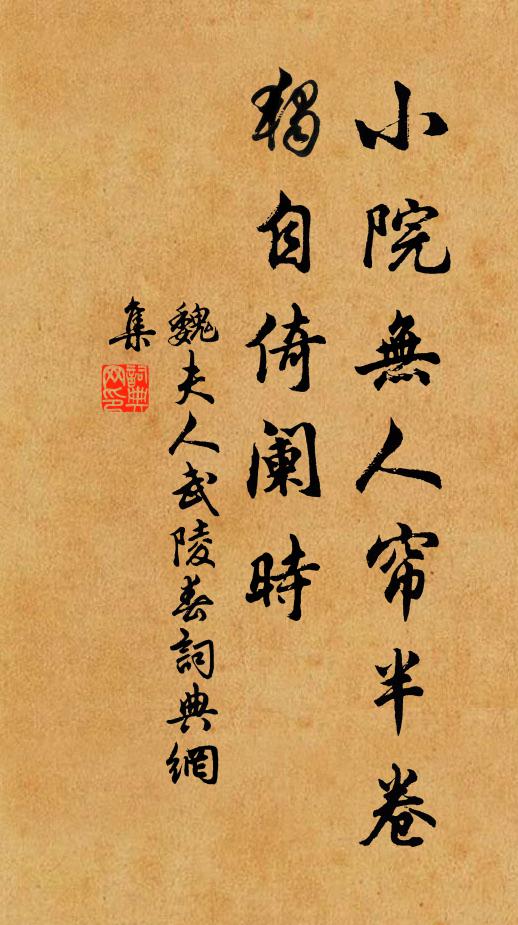 小院無人帘半卷
獨自倚闌時
魏夫人武陵春詞典網
集
詞典網印